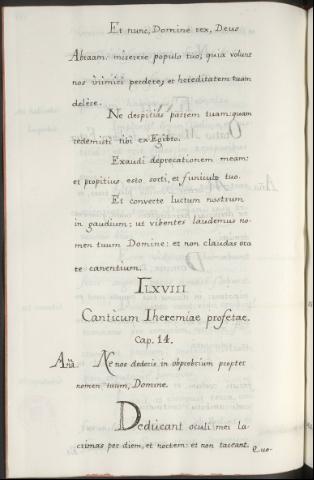 Et nunc, Domine rex, Deus
Abraam: miserere populo tuo, quia volunt
nos inimici perdere, et hereditatem tuam
delere.
Ne despitias partem tuam: quam
redemisti tibi ex Egibto.
Exaudi deprecationem meam:
et propitius esto sorti, et funiculo tuo.
Et converte luctum nostrum
in gaudium; ut vibentes laudemus no-
men tuum Domine: et non claudas ora
te canentium.
TLXVIII
Canticum Iheremiae profetae.
Cap. 14.
Aña. Ne nos dederis in obprobrium propter
nomen tuum, Domine.
Deducant oculi mei la-
crimas per diem, et noctem: et non taceant.
Quo-